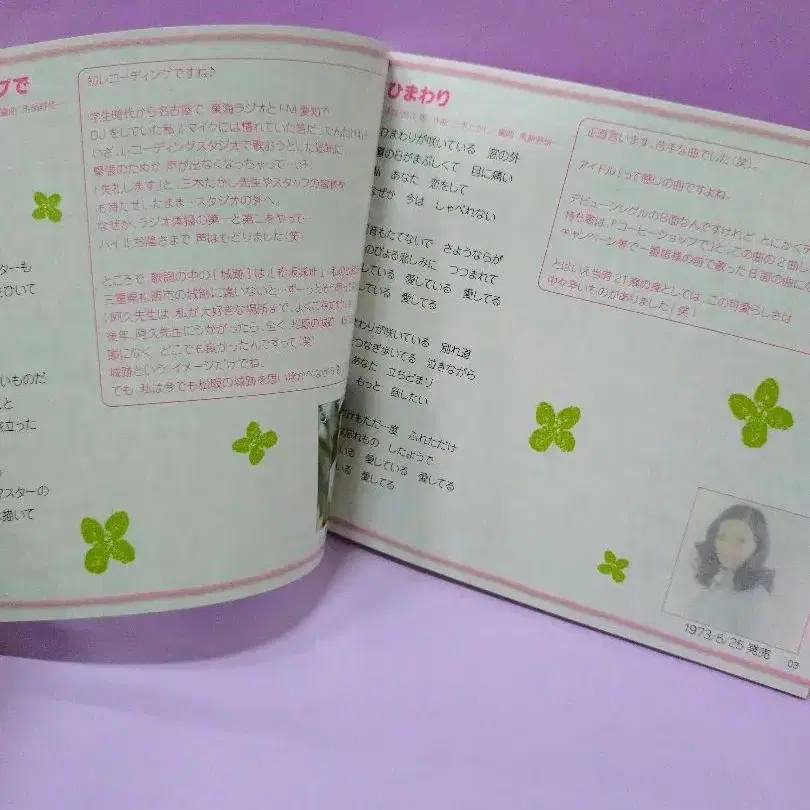 プで
初レコーディングですね♪
学生時代から名古屋で 東海ラジオとFM愛知で
DJをしていた私♪マイクには慣れていた筈だったんだけど
いざ、レコーディングスタジオで歌おうとした途端♪
緊張のためか 声が出なくなっちゃって…
「失礼します」と、三木たかし先生やスタッフの皆様を
お待たせしたまま…スタジオの外へ。
なぜか、ラジオ体操の第一と第二をやって…
ハイ♪お陰さまで 声はもどりました(笑)
ところで 歌詞の中の「城跡」は「松阪城跡」
三重県松阪市の城跡に違いないと、ずーっと
阿久先生は、私が大好きな場所まで、よくご存じで
後年、阿久先生にうかがったら、全く 松阪の城跡
誰になく どこでも良かったんですって(笑)
城跡という イメージだけでね。
でも、私は今でも松阪の城跡を思い浮かべながら
スターも
ひいて
いものだ
と
旅立った
マスターの
描いて
ひまわり
ひまわりが咲いている 窓の外
夏の日がまぶしくて 目に痛い
あなた 恋をして
なぜか 今は しゃべれない
音もたてないで さようならが
のびよる悲しみに つつまれて
している 愛している 愛してる
している 愛してる
まわりが咲いている 別れ道
つなぎ歩いてる 泣きながら
あなた 立ちどまり
もっと 話したい
もただ一度 ふれただけ
忘れもの したようで
いる 愛している 愛してる
いる 愛してる
正直言います。苦手な曲でした(笑)。
アイドル！って感じの曲ですよね。
デビューシングルのB面なんですけれど、とにかく
持ち歌は、『コーヒーショップで』と、この曲の2曲
キャンペーン等で一番皆様の前で歌った B面の曲に
とはいえ当時 21歳の身としては、この可愛らしさは
中々辛いものがありました！(笑)
1973/5/25 発売
03